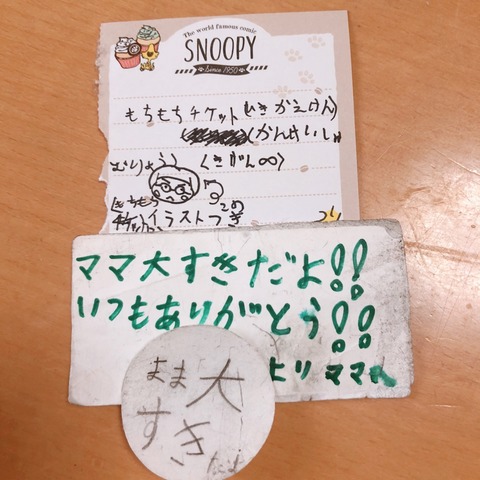 The world famous comic
SNOOPY
Since 1950
もちもちチケット(ひきかえけん)
(かんけいしゃ
むりょう (きげん∞)
イラストつき
ママ大すきだよ!!
いつもありがとう!!
より ママへ
まま大
すき
だよ